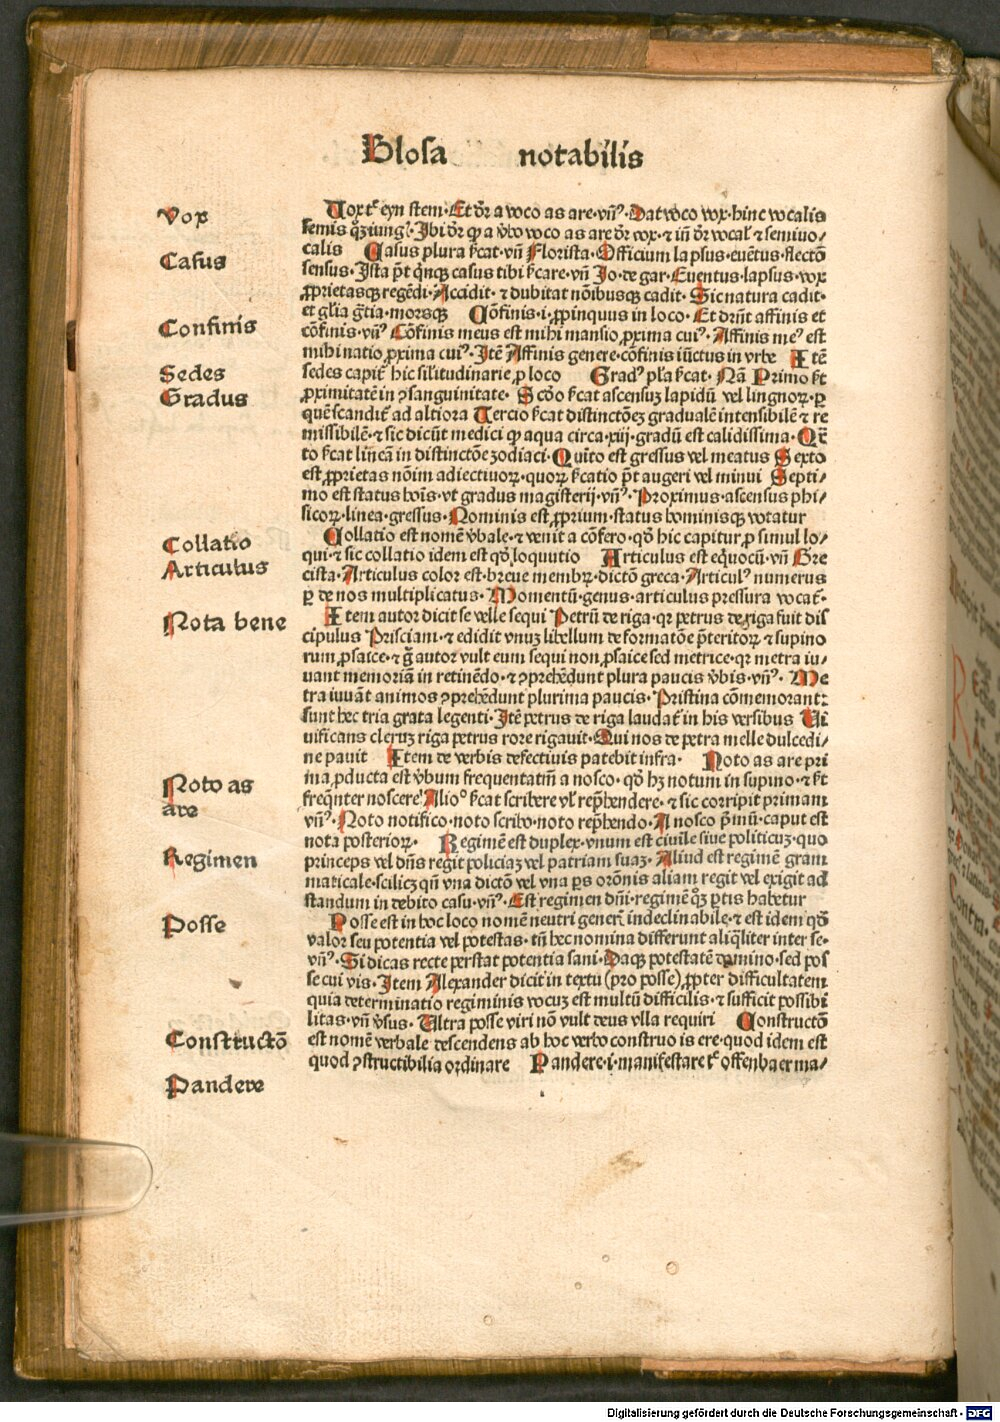 Glosa notabilis
Vox
Uoxt᷒ eyn stem·Et dr̄ a voco as are·vn̄ꝰ·Dat voco vox·hinc vocalis
semis qꝫ iungl̄·Ibi dr̄ ꝙ a v̄bo voco as are dr̄ vox·⁊ in̄ dr̄ vocal᷒ ⁊ semiuo/
Casus
calis Casus plura s̄cat·vn̄ Florista·Officium lapsus·euētus·flectō
sensus·Ista p̄t q̄nqꝫ casus tibi s̄care·vn̄ Jo·de gar·Euentus·lapsus·vox
ꝓprietasqꝫ regēdi·Accidit·⁊ dubitat nōibusqꝫ cadit·Sic natura cadit·
et gl̄ia gr̄tia·morsqꝫ Cōfinis·i·ꝓpinquus in loco·Et drn̄t affinis et
Confinis
cōfinis·vn̄ꝰ Cōfinis meus est mihi mansio ꝓxima cuiꝰ·Affinis meꝰ est
mihi natio ꝓxima cuiꝰ·Itē Affinis genere·cōfinis iūctus in vrbe Itē
Sedes
sedes capit᷒ hic sil̄itudinarie ꝓ loco Gradꝰ pl̄a s̄cat·Nā Primo s̄t
Gradus
ꝓximitatē in ꝯsanguinitate·Scd̄o s̄cat ascensuꝫ lapidū vel lingnoꝝ·ꝑ
quē scandit᷒ ad altiora Tercio s̄cat distinctōeꝫ gradualē intensibilē ⁊ re
missibilē·⁊ sic dicūt medici ꝙ aqua circa·xij·gradū est calidissima·Qr̄
to s̄cat lineā in distinctōe zodiaci·Quīto est gressus vel meatus Sexto
est ꝓprietas nōim adiectiuoꝝ·quoꝝ s̄catio p̄t augeri vel minui Septi/
mo est status hoīs·vt gradus magisterij·vn̄ꝰ·Proximus·ascensus phi/
sicoꝝ·linea·gressus·Nominis est ꝓprium·status hominisqꝫ votatur
Collatio
Collatio est nomē v̄bale·⁊ venit a cōfero·qd̄ hic capitur ꝓ simul lo/
Articulus
qui·⁊ sic collatio idem est qd̄ loquutio Articulus est eq̄uocū·vn̄ Gre
cista·Articulus color est·breue membꝝ·dictō greca·Articulꝰ numerus
ꝑ de nos multiplicatus·Momentū·genus·articulus pressura vocat᷒·
Nota bene
Item autor dicit se velle sequi Petrū de riga·qꝛ petrus de riga fuit dis
cipulus Prisciani·⁊ edidit vnuꝫ libellum de formatōe p̄teritoꝝ ⁊ supino
rum ꝓsaice·⁊ g̊ autor vult eum sequi non ꝓsaice sed metrice·qꝛ metra iu/
uant memoriā in retinēdo·⁊ ꝯprehēdunt plura paucis v̄bis·vn̄ꝰ·Me
tra iuuāt animos ꝯprehēdunt plurima paucis·Pristina cōmemorant:
sunt hec tria grata legenti·Itē petrus de riga laudat᷒ in his versibus Ui
uificans cleruꝫ riga petrus rore rigauit·Qui nos de petra melle dulcedi/
ne pauit Item de verbis defectiuis patebit infra· Noto as are pri
Noto as
are
ma ꝓducta est v̄bum frequentatiū a nosco·qd̄ hꝫ notum in supino·⁊ s̄t
freq̄nter noscere Alioꝰ s̄cat scribere vl᷒ rep̄hendere·⁊ sic corripit primam
vn̄ꝰ·Noto notifico·noto scribo·noto rep̄hendo·A nosco p̄mū·caput est
nota posterioꝝ· Regimē est duplex·vnum est ciuile siue politicuꝫ·quo
Regimen
princeps vel dn̄s regit policiaꝫ vel patriam suaꝫ·Aliud est regimē gram
maticale·scilicꝫ qn̄ vna dictō vel vna ps̄ orōnis aliam regit vel exigit ad
standum in debito casu·vn̄ꝰ·Est regimen dn̄i·regimē qꝫ ꝑtis habetur
Posse
Posse est in hoc loco nomē neutri gener᷒ indeclinabile·⁊ est idem qd̄
valor seu potentia vel potestas·tn̄ hec nomina differunt aliq̄liter inter se·
vn̄ꝰ·Si dicas recte perstat potentia sani·Daqꝫ potestatē domino·sed pos
se cui vis·Item Alexander dicit in textu (pro posse) ꝓpter difficultatem
quia determinatio regiminis vocuꝫ est multū difficilis·⁊ sufficit possibi
litas·vn̄ v̄sus·Ultra posse viri nō vult deus vlla requiri Constructō
Constructō
est nomē verbale descendens ab hoc verbo construo is ere·quod idem est
quod ꝯstructibilia ordinare Pandere·i·manifestare t᷒ offenbaer ma/
Pandere
Digitalisierung gefördert durch die Deutsche Forschungsgemeinschaft - DFG